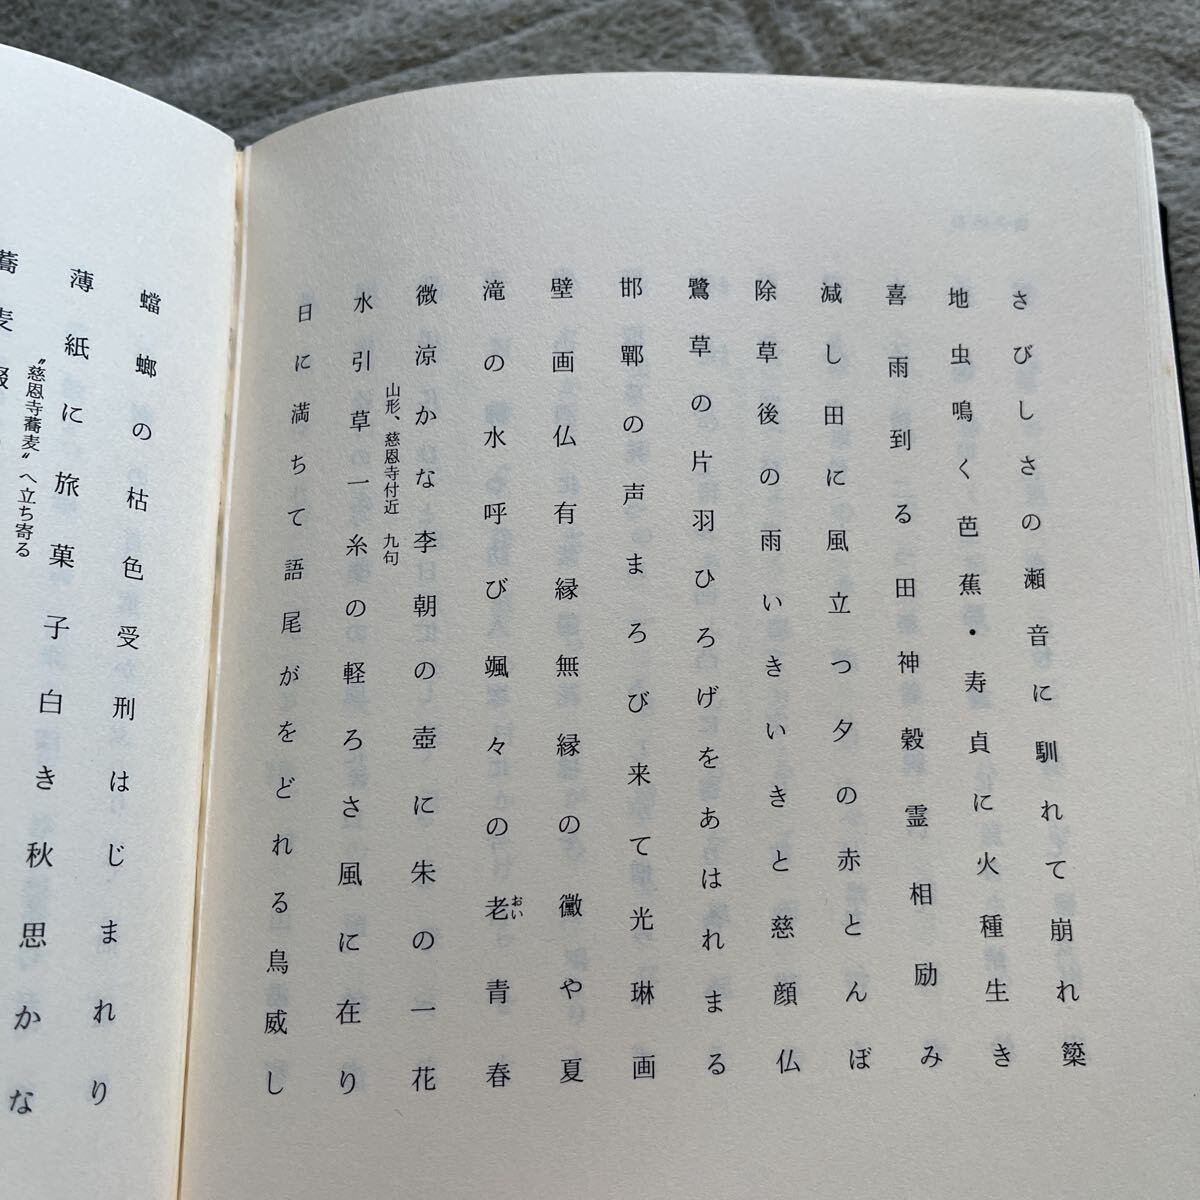 さびしさの瀬音に馴れて崩れ簗
地虫鳴く芭蕉・寿貞に火種生き
喜雨到る田神穀霊相励み
減し田に風立つ夕の赤とんぼ
除草後の雨いきいきと慈顔仏
鷺草の片羽ひろげをあはれまる
邯鄲の声まろび来て光琳画
壁画仏有縁無縁の黴や夏
滝の水呼び颯々の老青春
おい
微涼かな李朝の壺に朱の一花
山形、慈恩寺付近 九句
水引草の一糸の軽ろさ風に在り
日に満ちて語尾がをどれる鳥威し
蟷螂の枯色受刑はじまれり
薄紙に旅菓子白き秋思かな
〝慈恩寺蕎麦〟へ立ち寄る
蕎麦